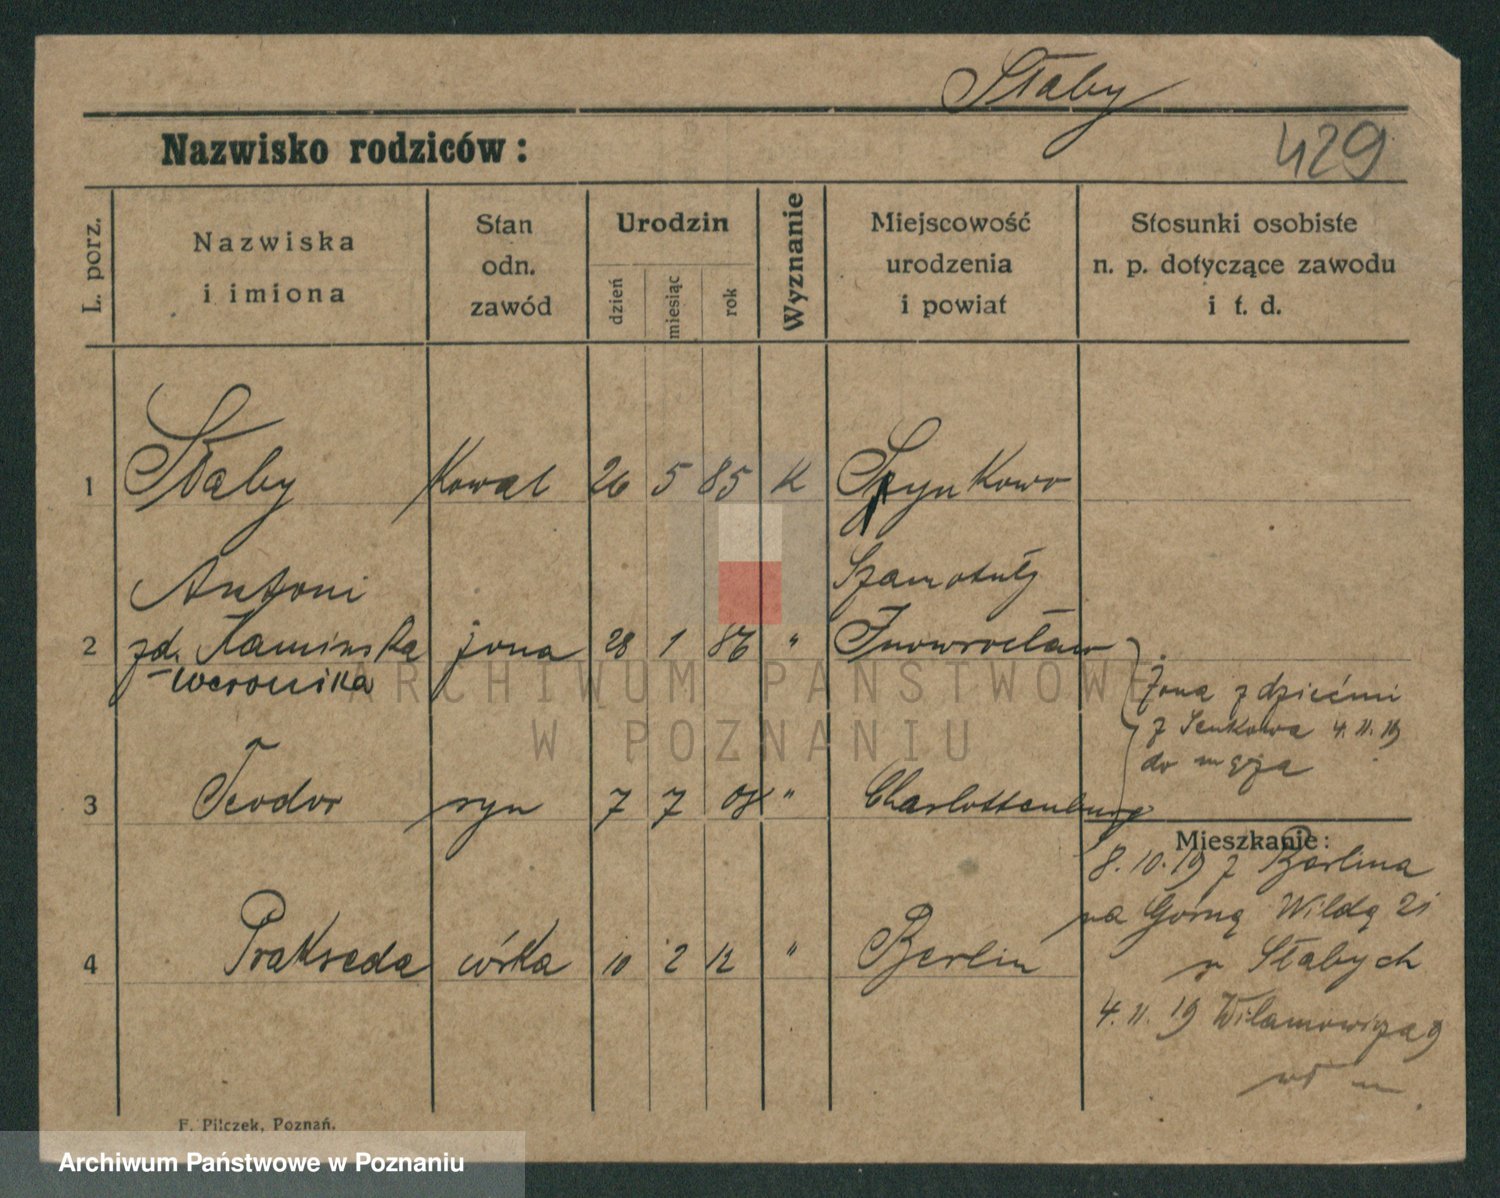 Słaby
Nazwisko rodziców:
429
L. porz.
Nazwiska
i imiona
Stan
odn.
zawód
Urodzin
dzień
miesiąc
rok
Wyznanie
Miejscowość
urodzenia
i powiat
Stosunki osobiste
n. p. dotyczące zawodu
i t. d.
1 Słaby Kowal 26 5 85 K
Antoni Szamotuły
2 zd. Kaminska żona 28 1 86 " Inowrocław
Weronika
żona z dziećmi
z 4. 11. 19
do męża
3 Teodor syn 7 7 08 " Charlottenburg
Mieszkanie:
8. 10. 19 z Berlina
na Górną Wildę 21
4 Prakseda córka 10 2 12 " Berlin
Słabych
4. 11. 19
F. Pilczek, Poznań.
ARCHIWUM PAŃSTWOWE
W POZNANIU
Archiwum Państwowe w Poznaniu